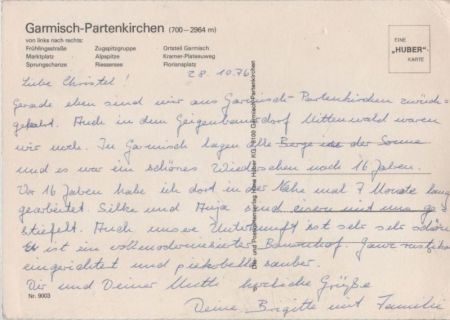 Garmisch-Partenkirchen (700-2964 m)
von links nach rechts:
Frühlingsstraße Zugspitzgruppe Ortsteil Garmisch
Marktplatz Alpspitze Kramer-Plateauweg
Sprungschanze Riessersee Floriansplatz
EINE
„HUBER"-
KARTE
28.10.76
Liebe Christel!
Gerade eben sind wir aus Garmisch-Partenkirchen zurück-
gekehrt. Auch in dem Geigenbauerdorf Mittenwald waren
wir noch. In Garmisch lagen alle Berge in der Sonne
und es war ein schönes Wiedersehen nach 16 Jahren.
Vor 16 Jahren habe ich dort in der Nähe mal 7 Monate lang
gearbeitet. Silke und Anja sind eisern mit uns ge-
stiefelt. Auch unsere Unterkunft ist sehr sehr schön
Es ist ein vollmodernisierter Bauernhof. Ganz rustikal
eingerichtet und piekobello sauber.
Dir und Deiner Mutti herzliche Grüße
Deine Brigitte mit Familie
Nr. 9003
Postkartenverlag Huber KG, 8100 Garmisch-Partenkirchen